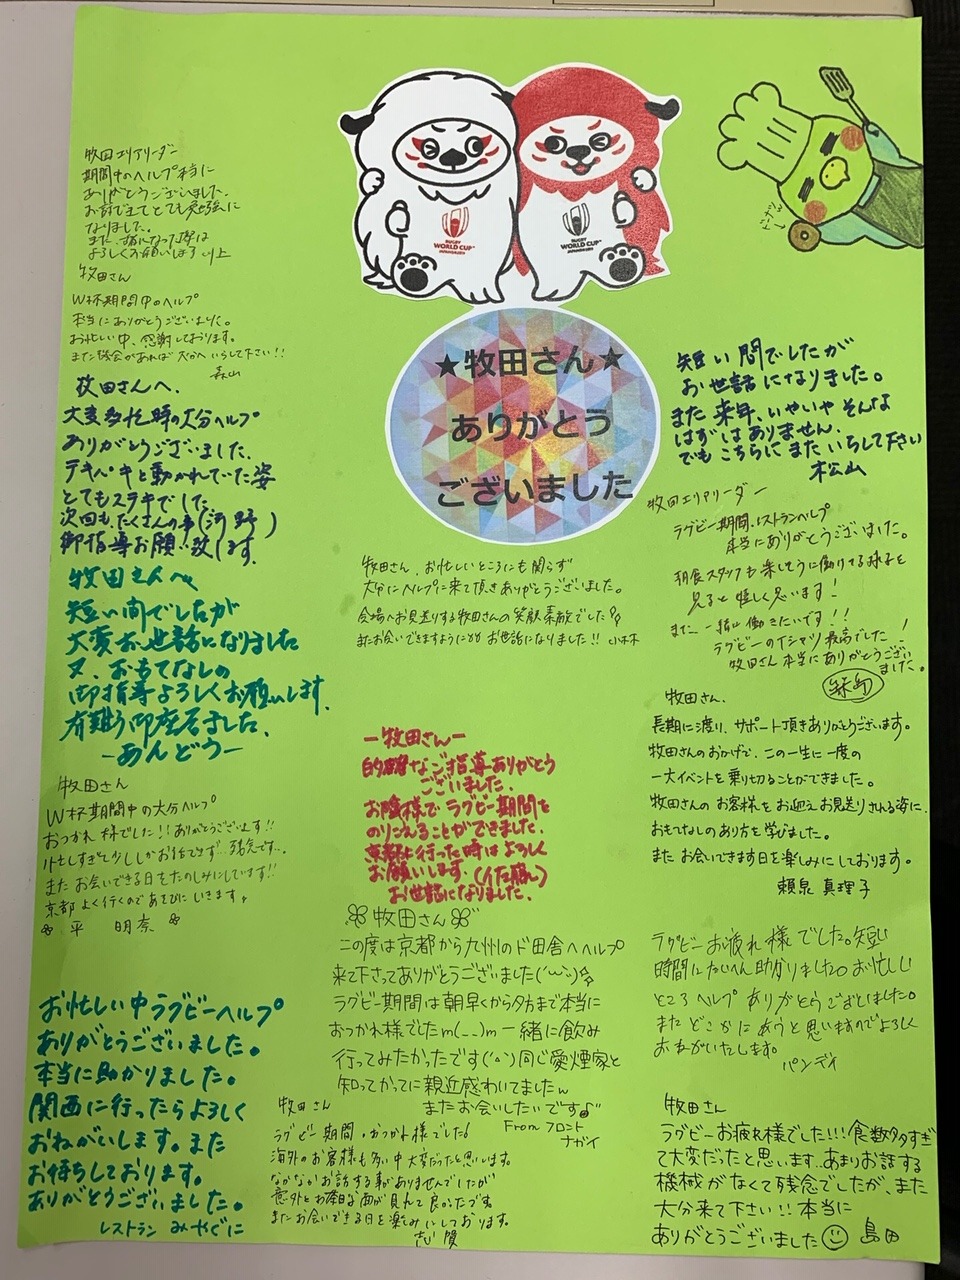 RUGBY
WORLD CUP™
RUGBY
WORLD CUP™
★牧田さん★
ありがとう
ございました
ドーナツ
牧田エリアリーダー
期間中のヘルプ本当に
ありがとうございました。
なりました。
よろしくお願いします 以上
牧田さん
W杯期間中のヘルプ
本当にありがとうございました。
お忙しい中、感謝しております。
また機会があれば 大分へいらして下さい!!
森山
牧田さんへ、
大変多忙時の大分ヘルプ
ありがとうございました。
テキパキと動かれていた姿
とてもステキでした
次回も、たくさんの事 (河野)
御指導お願い致します。
牧田さんへ
短い間でしたが
大変お世話になりました
又、おもてなしの
御指導よろしくお願いします.
有難う御座居ました、
-あんどう-
牧田さん
W杯期間中の大分ヘルプ
おつかれ様でした!! ありがとうございます!!
忙しすぎて少ししかお話できず…残念です…
また お会いできる日をたのしみにしています!!
京都 よく行くのであそびに いきます♪
平 明奈
お忙しい中ラグビーヘルプ
ありがとうございました。
本当に助かりました。
関西に行ったらよろしく
おねがいします。また
お待ちしております。
ありがとうございました。
レストラン みやぐに
牧田さん、お忙しいところにも関らず
大分にヘルプに来て頂きありがとうございました。
会場へお見送りする牧田さんの笑顔 素敵でした
またお会いできますように お世話になりました!!
ー牧田さんー
的確なご指導ありがとう
ございました。
お陰様で ラグビー期間を
のりこえることができました。
京都に行った時は よろしく
お願いします。(佐藤)
お世話になりました。
牧田さん
この度は京都から九州のド田舎へヘルプ
来て下さってありがとうございました(´ω`)
ラグビー期間は朝早くから夕方まで本当に
おつかれ様でしたm(__)m 一緒に飲み
行ってみたかったです(^^) 同じ愛煙家と
知ってかってに親近感わいてましたw
またお会いしたいです♪
From フロント
ナガイ
牧田さん
ラグビー期間、おつかれ様でした!
海外のお客様も多い中 大変だったと思います。
なかなかお話する事がありませんでしたが
意外とお茶目な面が見れて良かったです。
またお会いできる日を楽しみにしております。
志賀
短い間でしたが
お世話になりました。
また来年、いやいやそんな
はずはありません、
でもこちらにまたいらして下さい
松山
牧田エリアリーダー
ラグビー期間、レストランヘルプ
本当にありがとうございました。
朝食スタッフも楽しそうに働けてる様子を
見ると嬉しく思います!
また、一緒に働きたいです!!
ラグビーのTシャツ最高でした!
牧田さん本当にありがとうござい
ました。
牧田さん、
長期に渡り、サポート頂きありがとうございます。
牧田さんのおかげで、この一生に一度の
一大イベントを乗り切ることができました。
牧田さんのお客様をお迎えお見送りされる姿に、
おもてなしのあり方を学びました。
また お会いできます日を楽しみにしております。
頼泉 真理子
ラグビーお疲れ様でした。短い
時間にたいへん助かりました。お忙しい
ところ ヘルプ ありがとうございました。
またどこかに あうと思いますのでよろしく
おねがいたします。
パンディ
牧田さん
ラグビーお疲れ様でした!!! 食数多すぎ
て大変だったと思います…あまりお話する
機械がなくて残念でしたが、また
大分来て下さい!! 本当に
ありがとうございました☺ 島田